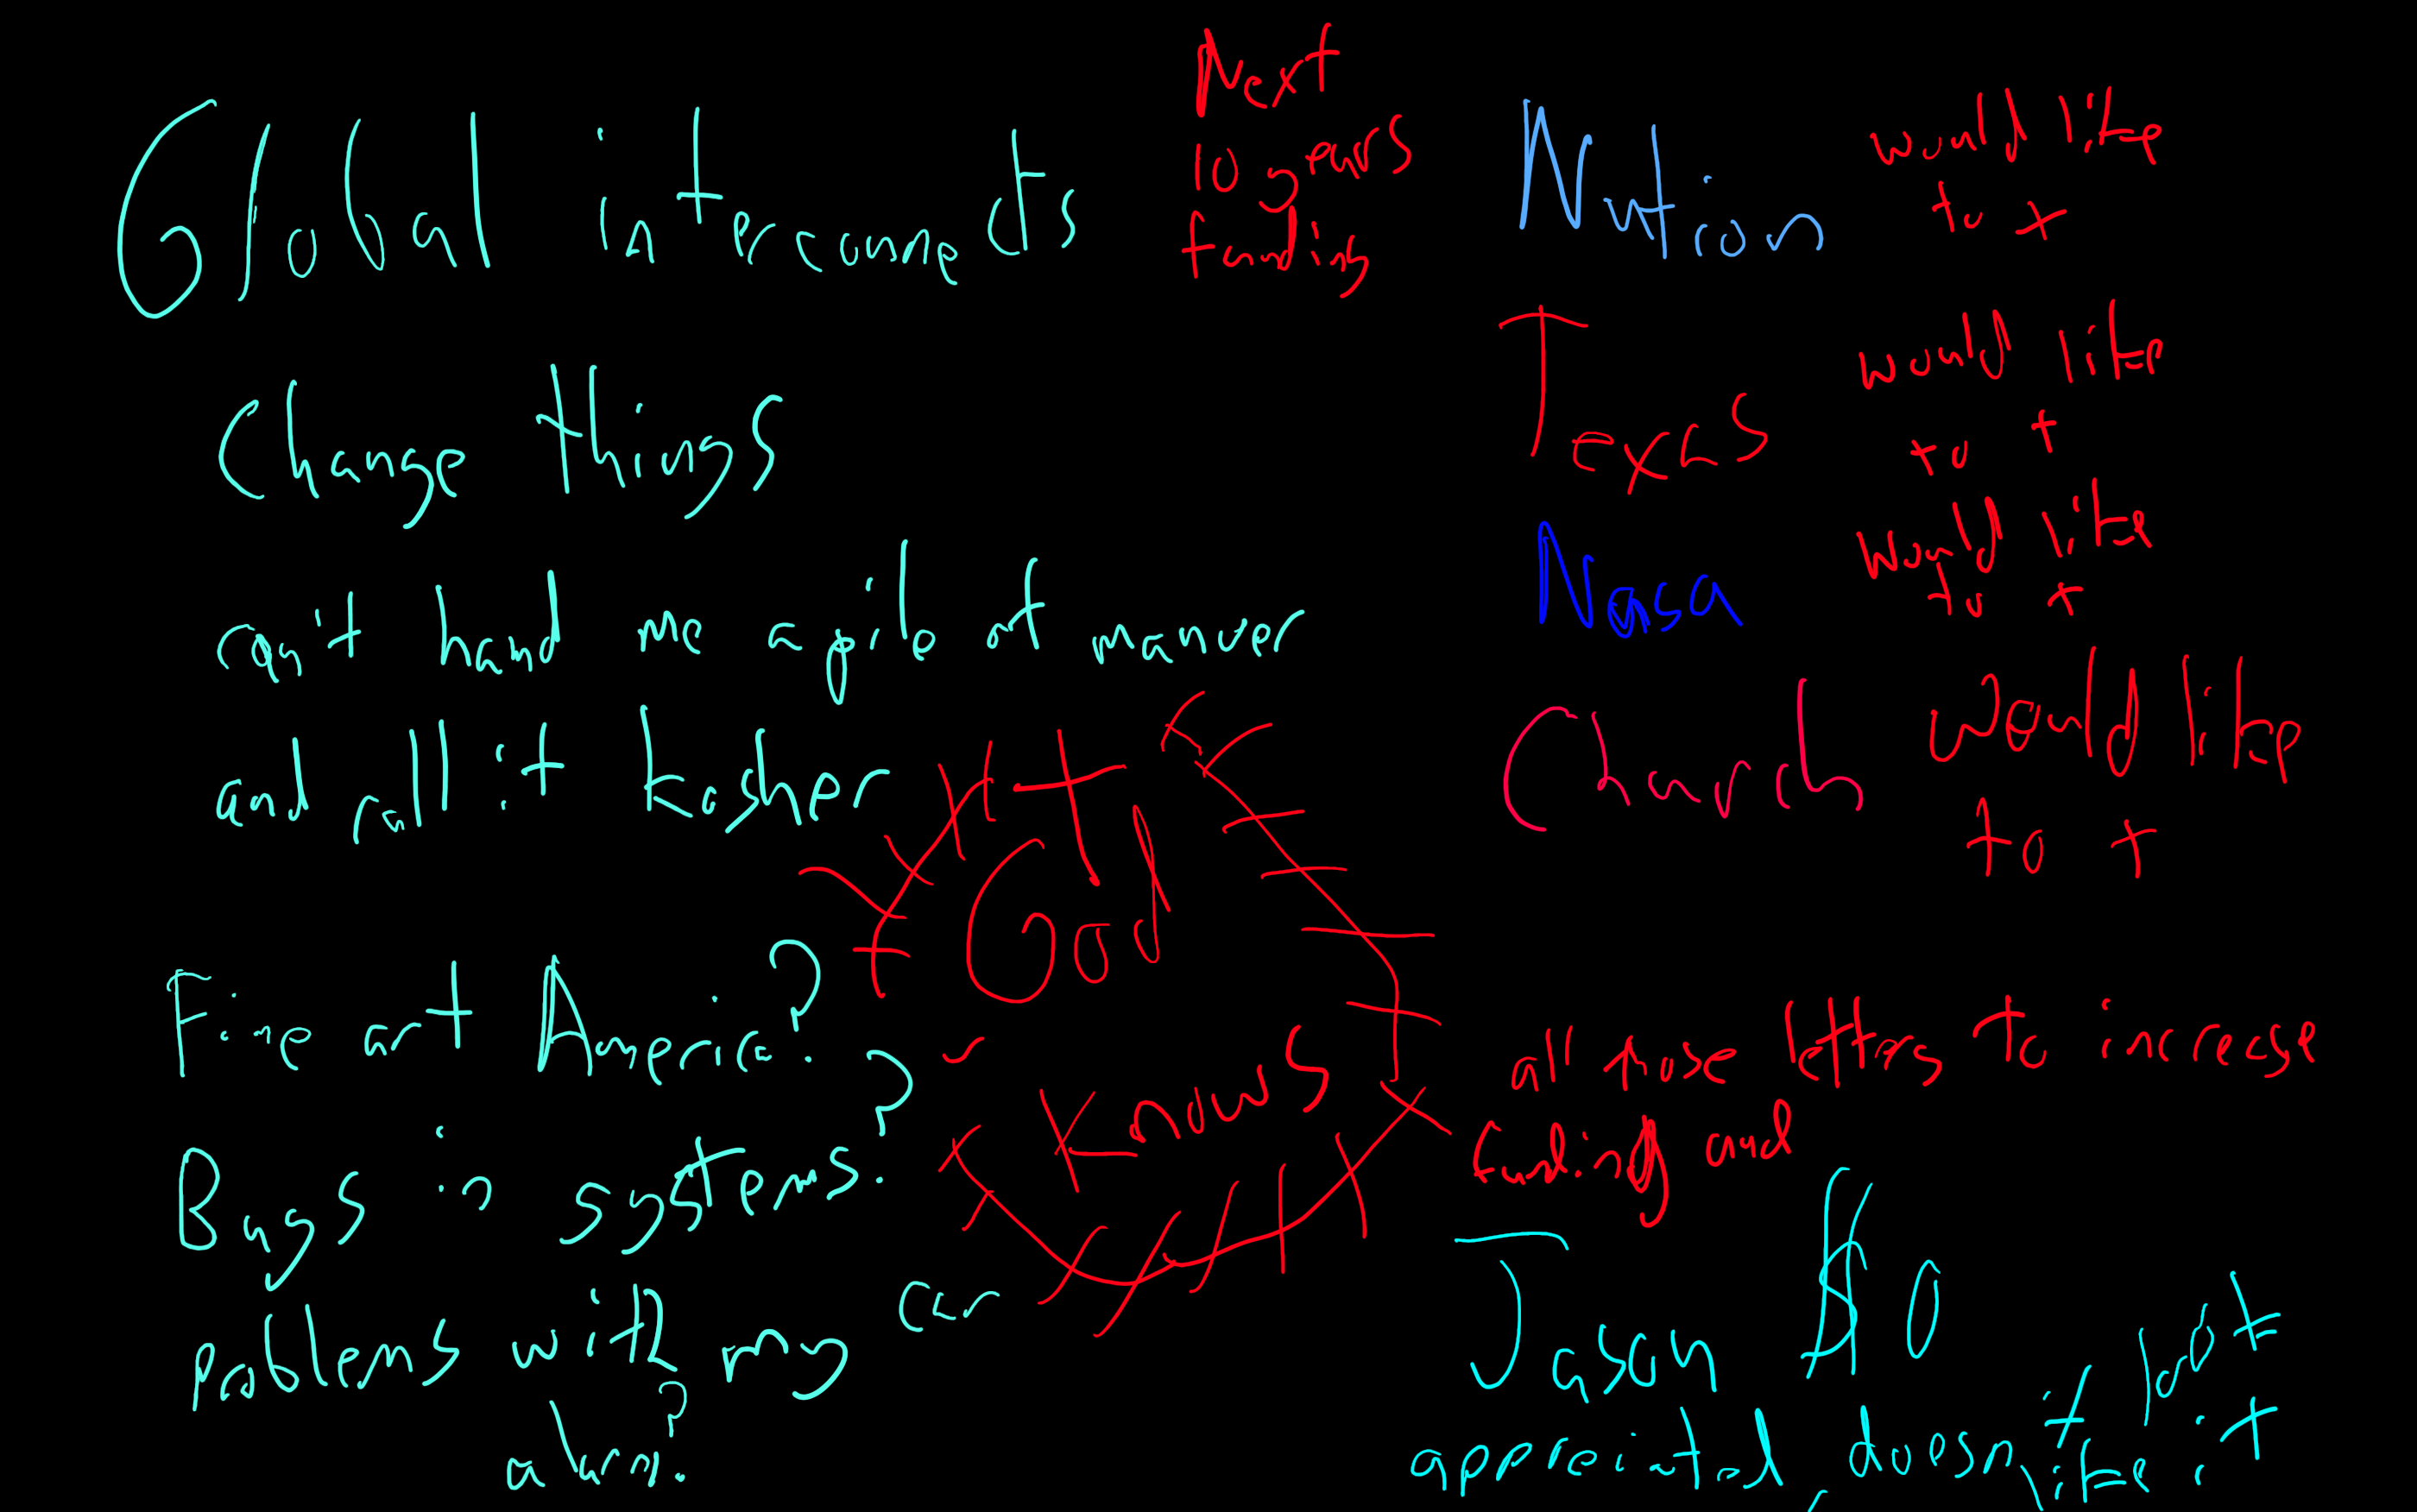 Global interconnects
Change things
can't hand me a pile of manuer
and call it kosher
Fine art America?
Bugs in systems?
problems with my car
alarm?
God
Knows
Next
10 years
funding
Nation would like
to +
Texas would like
to +
Nasa would like
to +
Church would like
to +
all those letters to increase
funding and
Jason $0
doesn't
like it